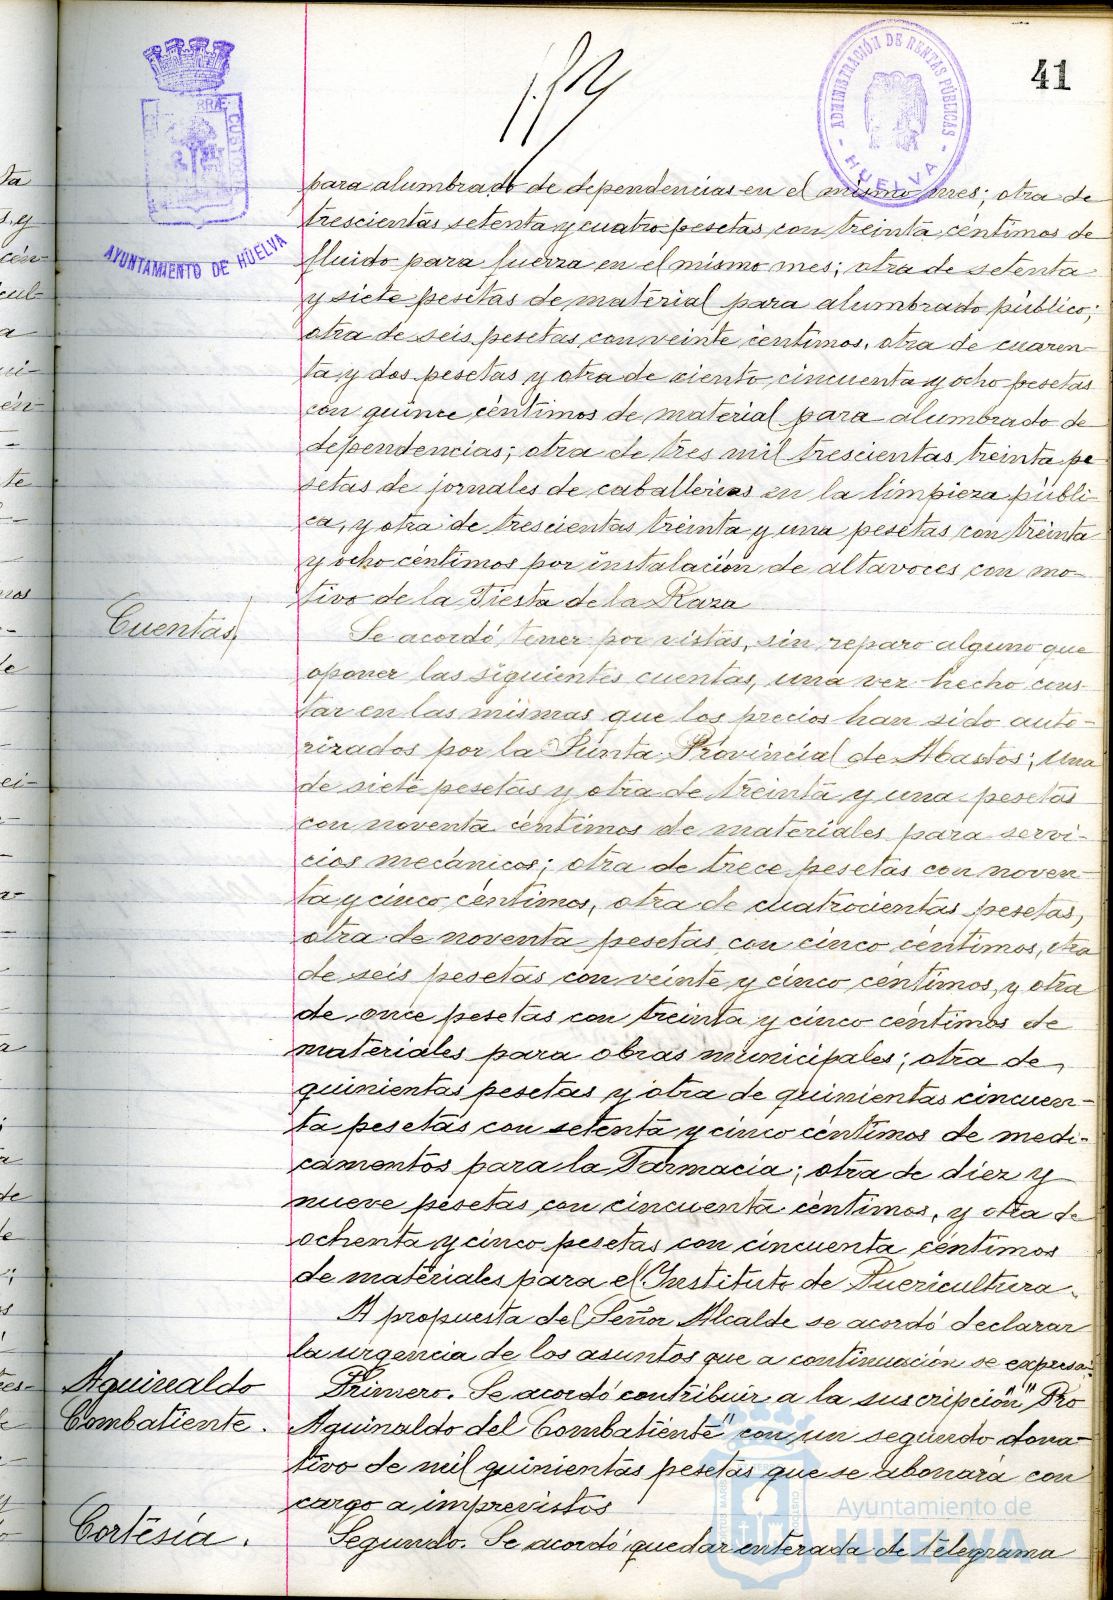 41
ADMINISTRACIÓN DE RENTAS PÚBLICAS
HUELVA
AYUNTAMIENTO DE HUELVA
para alumbrado de dependencias en el mismo mes; otra de
trescientas setenta y cuatro pesetas con treinta céntimos de
fluido para fuerza en el mismo mes; otra de setenta
y siete pesetas de material para alumbrado público;
otra de seis pesetas con veinte céntimos, otra de cuaren-
ta y dos pesetas y otra de ciento cincuenta y ocho pesetas
con quince céntimos de material para alumbrado de
dependencias; otra de tres mil trescientas treinta pe
setas de jornales de caballerias en la limpieza públi-
ca, y otra de trescientas treinta y una pesetas con treinta
y ocho céntimos por instalación de altavoces con mo-
tivo de la Fiesta de la Raza
Cuentas
Se acordó tener por vistas, sin reparo alguno que
oponer las siguientes cuentas, una vez hecho cons-
tar en las mismas que los precios han sido auto-
rizados por la Junta Provincial de Abastos; una
de siete pesetas y otra de treinta y una pesetas
con noventa céntimos de materiales para servi-
cios mecánicos; otra de trece pesetas con noven-
ta y cinco céntimos, otra de cuatrocientas pesetas,
otra de noventa pesetas con cinco céntimos, otra
de seis pesetas con veinte y cinco céntimos, y otra
de once pesetas con treinta y cinco céntimos de
materiales para obras municipales; otra de
quinientas pesetas y otra de quinientas cincuen-
ta pesetas con setenta y cinco céntimos de medi-
camentos para la Farmacia; otra de diez y
nueve pesetas con cincuenta céntimos, y otra de
ochenta y cinco pesetas con cincuenta céntimos
de materiales para el Instituto de Puericultura.
A propuesta del Señor Alcalde se acordó declarar
la urgencia de los asuntos que a continuación se expresa:
Aguinaldo
Combatiente.
Primero. Se acordó contribuir a la suscripción "Pro
Aguinaldo del Combatiente" con un segundo dona-
tivo de mil quinientas pesetas que se abonará con
cargo a imprevistos
Cortesía.
Segundo. Se acordó quedar enterada de telegrama
Ayuntamiento de
HUELVA